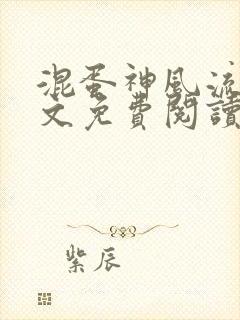 混蛋神風流
文免費閱讀
紫辰